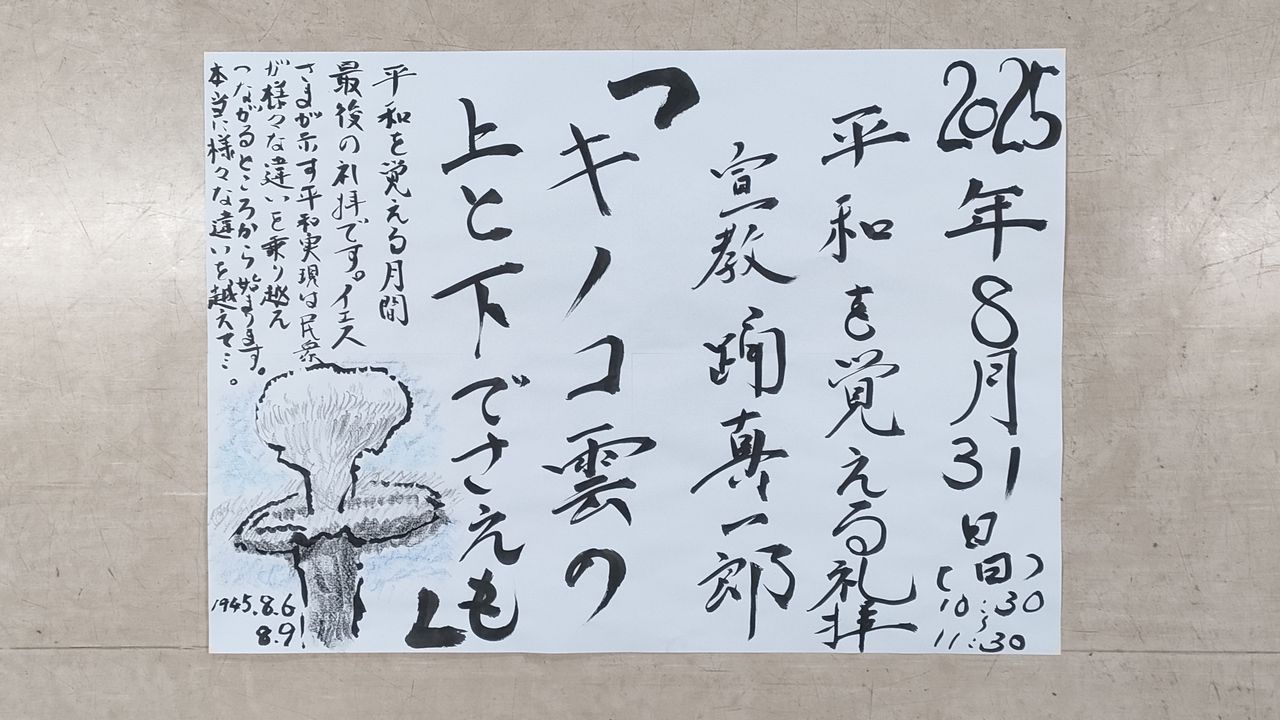 2025年8月31日(日)
10:30
〜
11:30
平和を覚える礼拝
宣教 踊真一郎
「キノコ雲の
上と下でさえも」
平和を覚える月間
最後の礼拝です。イエス
さまが示す平和実現は民衆
が様々な違いを乗り越え
つながるところから始まります。
本当に様々な違いを越えて…。
1945.8.6
8.9!